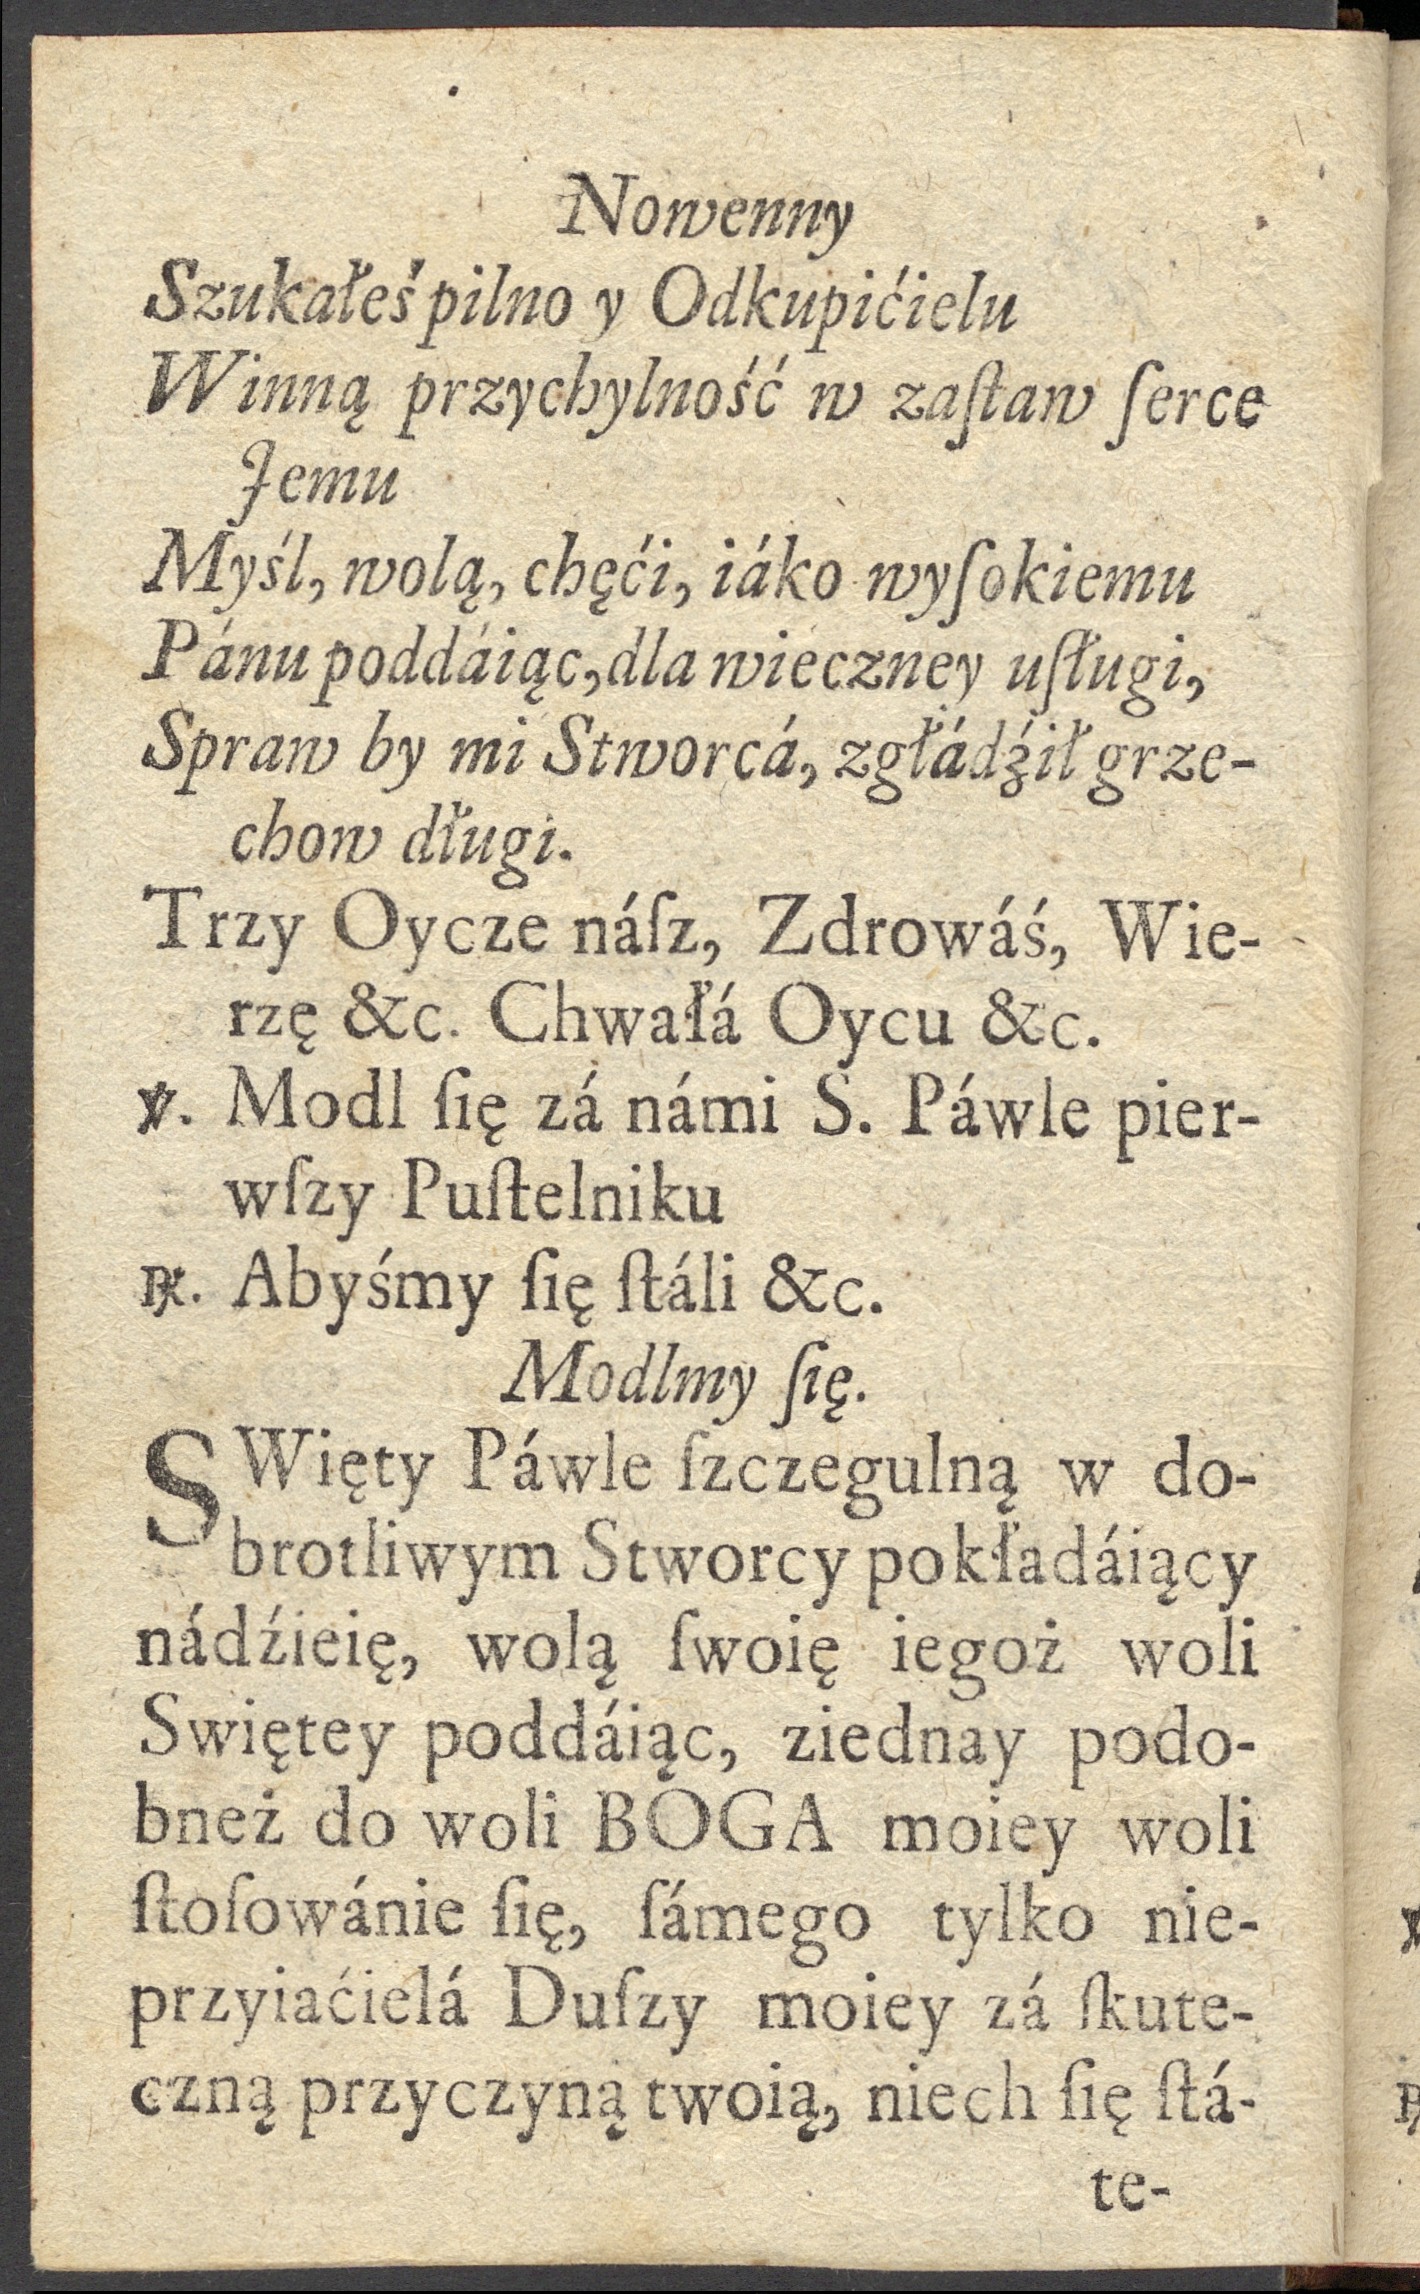 Nowenny
Szukałeś pilno y Odkupićielu
Winną przychylność w zaſtaw ſerce
Jemu
Myśl, wolą, chęći, iáko wyſokiemu
Pánu poddáiąc, dla wieczney uſługi,
Spraw by mi Stworcá, zgłádźił grze-
chow długi.
Trzy Oycze náſz, Zdrowáś, Wie-
rzę &c. Chwałá Oycu &c.
℣. Modl ſię zá námi S. Páwle pier-
wſzy Puſtelniku
℟. Abyśmy ſię ſtáli &c.
Modlmy ſię.
SWięty Páwle ſzczegulną w do-
brotliwym Stworcy pokładáiący
nádźieię, wolą ſwoię iegoż woli
Swiętey poddáiąc, ziednay podo-
bneż do woli BOGA moiey woli
ſtoſowánie ſię, ſámego tylko nie-
przyiaćielá Duſzy moiey zá ſkute-
czną przyczyną twoią, niech ſię ſtá-
te-